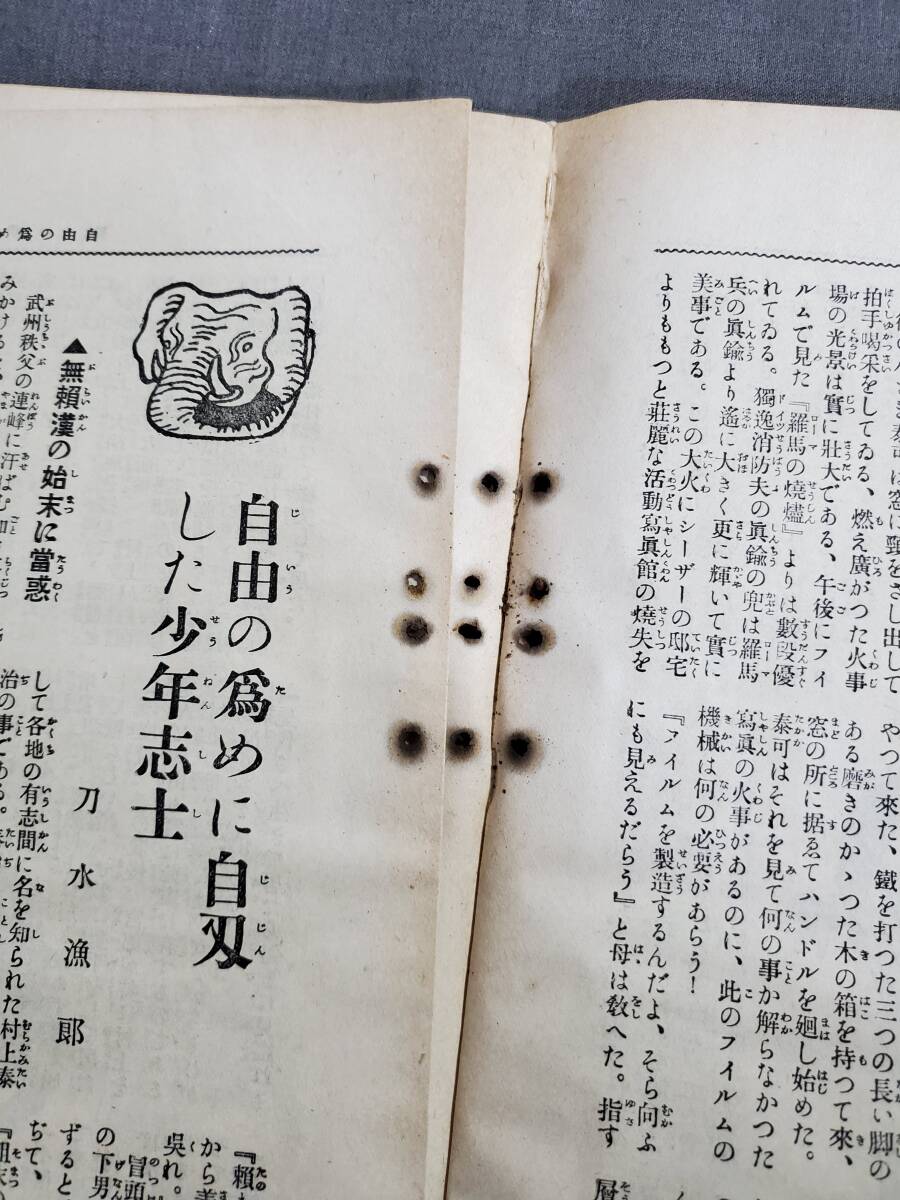 拍手喝采をしてゐる、燃え廣がつた火事
場の光景は實に壯大である、午後にフイ
ルムで見た『羅馬の燒燼』よりは數段優
れてゐる。獨逸消防夫の眞鍮の兜は羅馬
兵の眞鍮より遙に大きく更に輝いて實に
美事である。この大火にシーザーの邸宅
よりももつと莊麗な活動寫眞館の燒失を
やつて來た、鐵を打つた三つの長い脚の
ある磨きのかゝつた木の箱を持つて來、
窓の所に据ゑてハンドルを廻し始めた。
泰可はそれを見て何の事か解らなかつた
寫眞の火事があるのに、此のフイルムの
機械は何の必要があらう！
『フイルムを製造するんだよ、そら向ふ
にも見えるだらう』と母は敎へた。指す
自由の爲め
自由の爲めに自刄
した少年志士
刀水漁郞
▲無賴漢の始末に當惑
武州秩父の連峰に汗ばむ
みかけると
して各地の有志間に名を知られた村上泰
治の事である。
『賴
から
吳れ。
冒頭
の下男
ずると
ぢて、